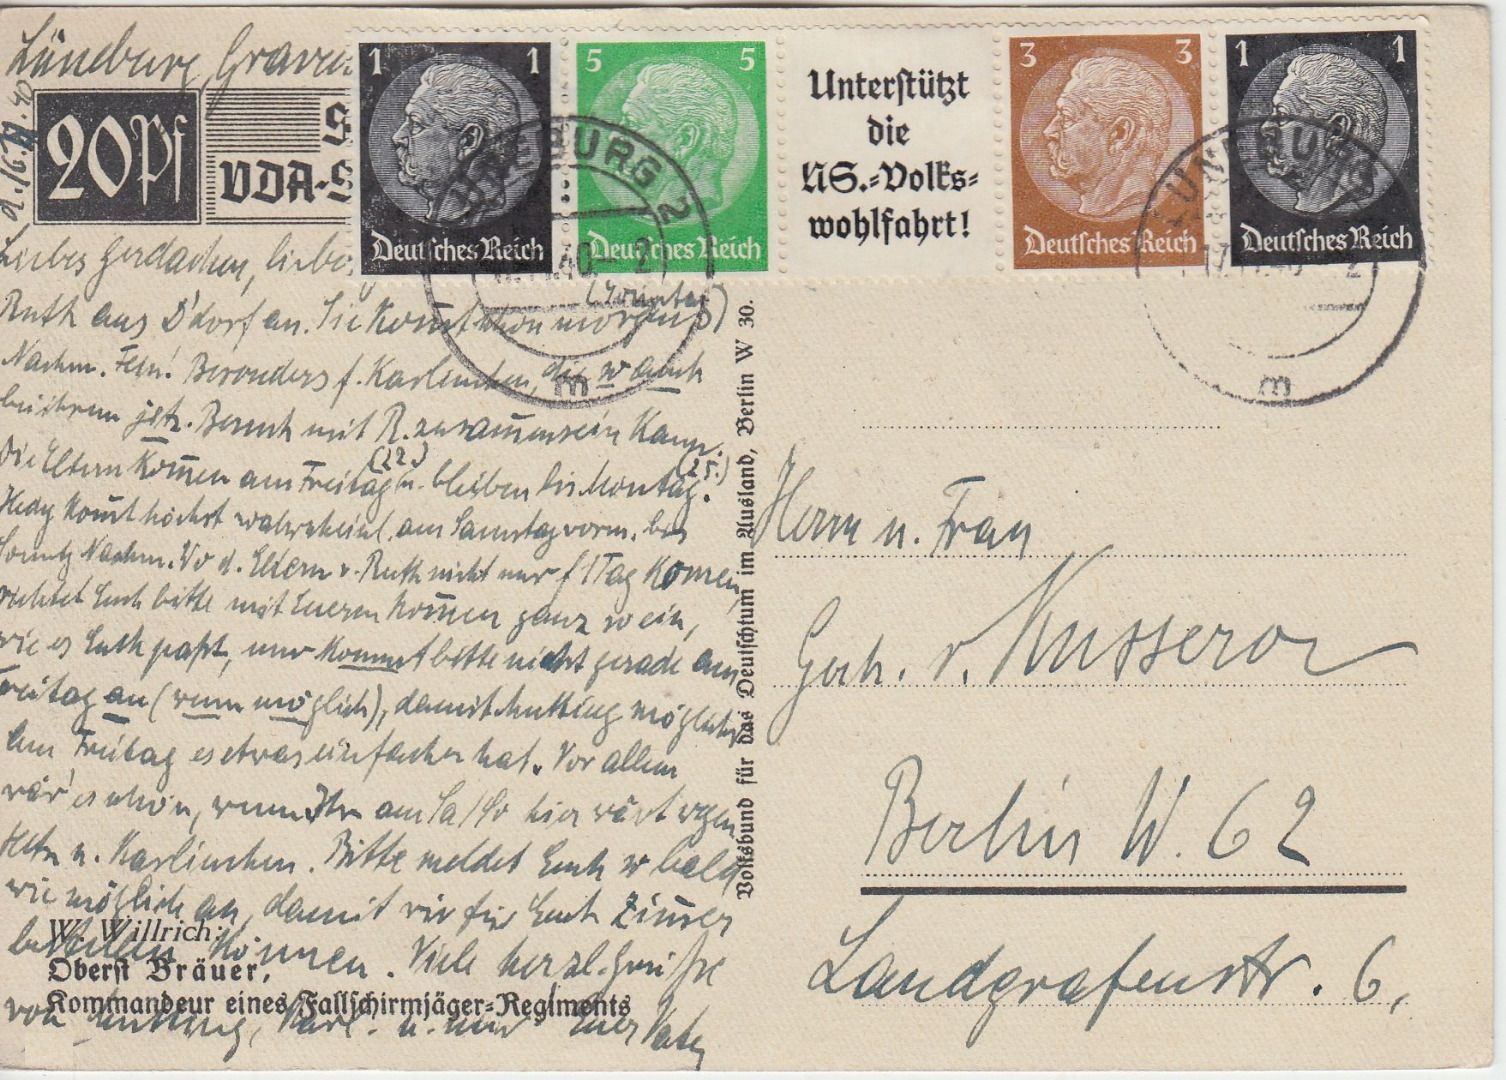 Lüneburg,
d. 16. 40
20 Pf
VDA-S
1 1
Deutsches Reich
5 5
Deutsches Reich
Unterstützt
die
NS.-Volks-
wohlfahrt!
3 3
Deutsches Reich
1 1
Deutsches Reich
LÜNEBURG 2
m
LÜNEBURG
m
Liebes Gerdachen, liebe
Ruth aus D'dorf an. Sie kommt schon morgen (Sonntag)
Nachm. Fein! Besonders f. Karlinchen, die so auch
bei ihrem jetz. Besuch mit R. zusammensein kann.
Die Eltern kommen am Freitag (22.) u. bleiben bis Montag. (25.)
Hedy kommt höchst wahrscheinl. am Samstag vorm. bis
Sonntg Nachm. Wo d. Eltern u. Ruth nicht nur f 1 Tag kommen,
richtet Euch bitte mit Euerm Kommen ganz so ein,
wie es Euch paßt, nur kommt bitte nicht gerade am
Freitag an (wenn möglich), damit Mutting möglichst
am Freitag es etwas einfacher hat. Vor allem
wär' es schön, wenn Ihr am Sa/So hier wärt wegen
Eltern u. Karlinchen. Bitte meldet Euch so bald
wie möglich an, damit wir für Euch Zimmer
bestellen können. Viele herzl. Grüße
von Mutting, Karl. u. Eurem Vater
W. Willrich:
Oberst Bräuer,
Kommandeur eines Fallschirmjäger-Regiments
Volksbund für das Deutschtum im Ausland, Berlin W 30.
Herrn u. Frau
Gerh. v. Kusserow
Berlin W. 62
Landgrafenstr. 6,